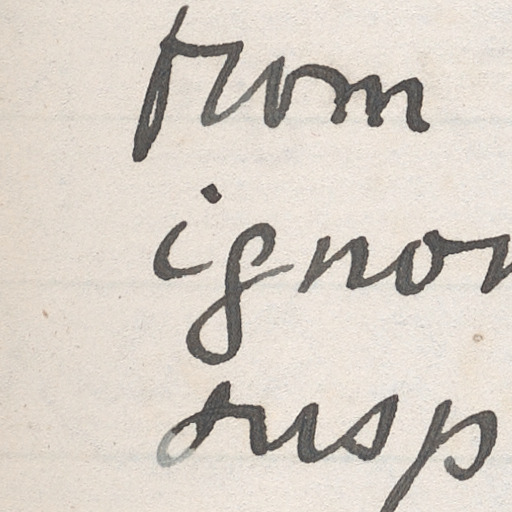 from
ignor
susp